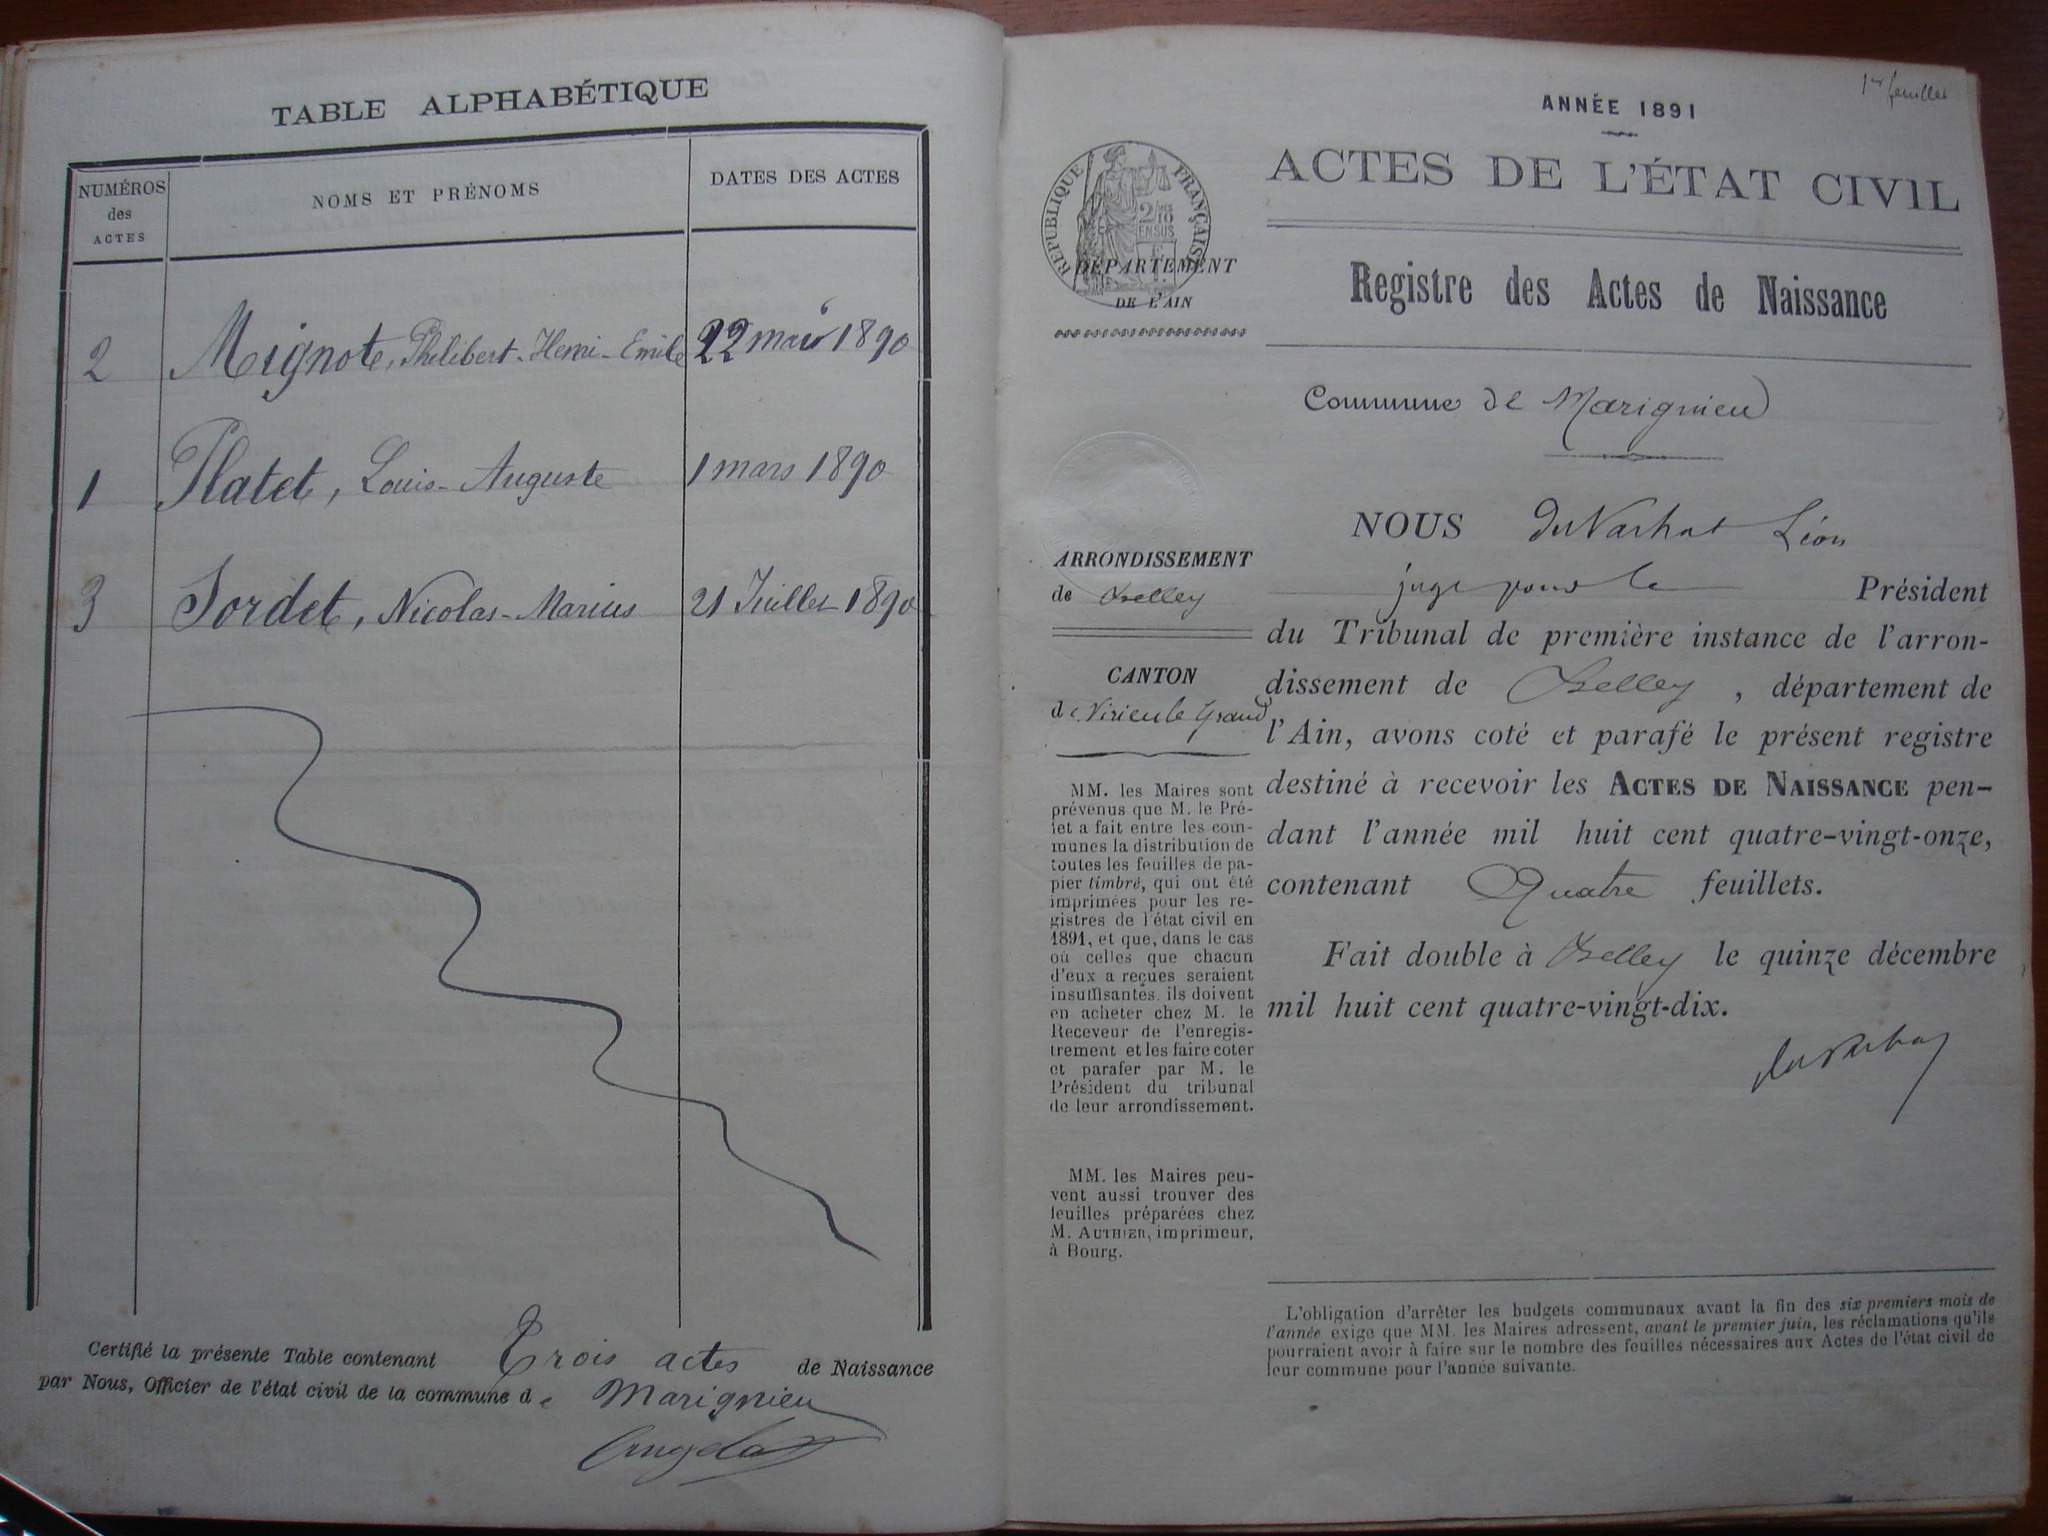 TABLE ALPHABÉTIQUE
NUMÉROS
des
ACTES
NOMS ET PRÉNOMS
DATES DES ACTES
2 Mignote, Philibert-Henri-Emile 22 mai 1890
1 Platet, Louis-Auguste 1 mars 1890
3 Sordet, Nicolas-Marius 21 Juillet 1890
Certifié la présente Table contenant Trois actes de Naissance
par Nous, Officier de l'état civil de la commune de Marignieu
1er feuillet
ANNÉE 1891
ACTES DE L'ÉTAT CIVIL
RÉPUBLIQUE FRANÇAISE
2/10
EN SUS
DÉPARTEMENT
DE L'AIN
Registre des Actes de Naissance
Commune de Marignieu
ARRONDISSEMENT
de Belley
CANTON
de Virieu le Grand
MM. les Maires sont
prévenus que M. le Pré-
fet a fait entre les com-
munes la distribution de
toutes les feuilles de pa-
pier timbré, qui ont été
imprimées pour les re-
gistres de l'état civil en
1891, et que, dans le cas
où celles que chacun
d'eux a reçues seraient
insuffisantes, ils doivent
en acheter chez M. le
Receveur de l'enregis-
trement et les faire coter
et parafer par M. le
Président du tribunal
de leur arrondissement.
MM. les Maires peu-
vent aussi trouver des
feuilles préparées chez
M. AUTHIER, imprimeur,
à Bourg.
NOUS Léon
juge pour le Président
du Tribunal de première instance de l'arron-
dissement de Belley, département de
l'Ain, avons coté et parafé le présent registre
destiné à recevoir les ACTES DE NAISSANCE pen-
dant l'année mil huit cent quatre-vingt-onze,
contenant Quatre feuillets.
Fait double à Belley le quinze décembre
mil huit cent quatre-vingt-dix.
L'obligation d'arrêter les budgets communaux avant la fin des six premiers mois de
l'année exige que MM. les Maires adressent, avant le premier juin, les réclamations qu'ils
pourraient avoir à faire sur le nombre des feuilles nécessaires aux Actes de l'état civil de
leur commune pour l'année suivante.